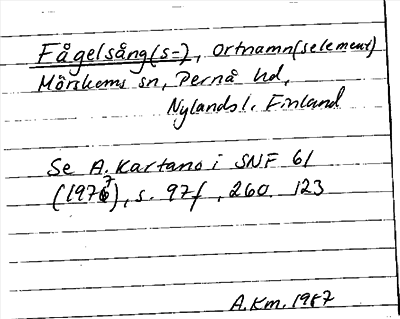 Fågelsång(s-), ortnamn(selement)
Mörskoms sn, Pernå hd,
Nylands l. Finland
Se A. Kartano i SNF 61
(1977), s. 97f, 260. 123
A.Km. 1987